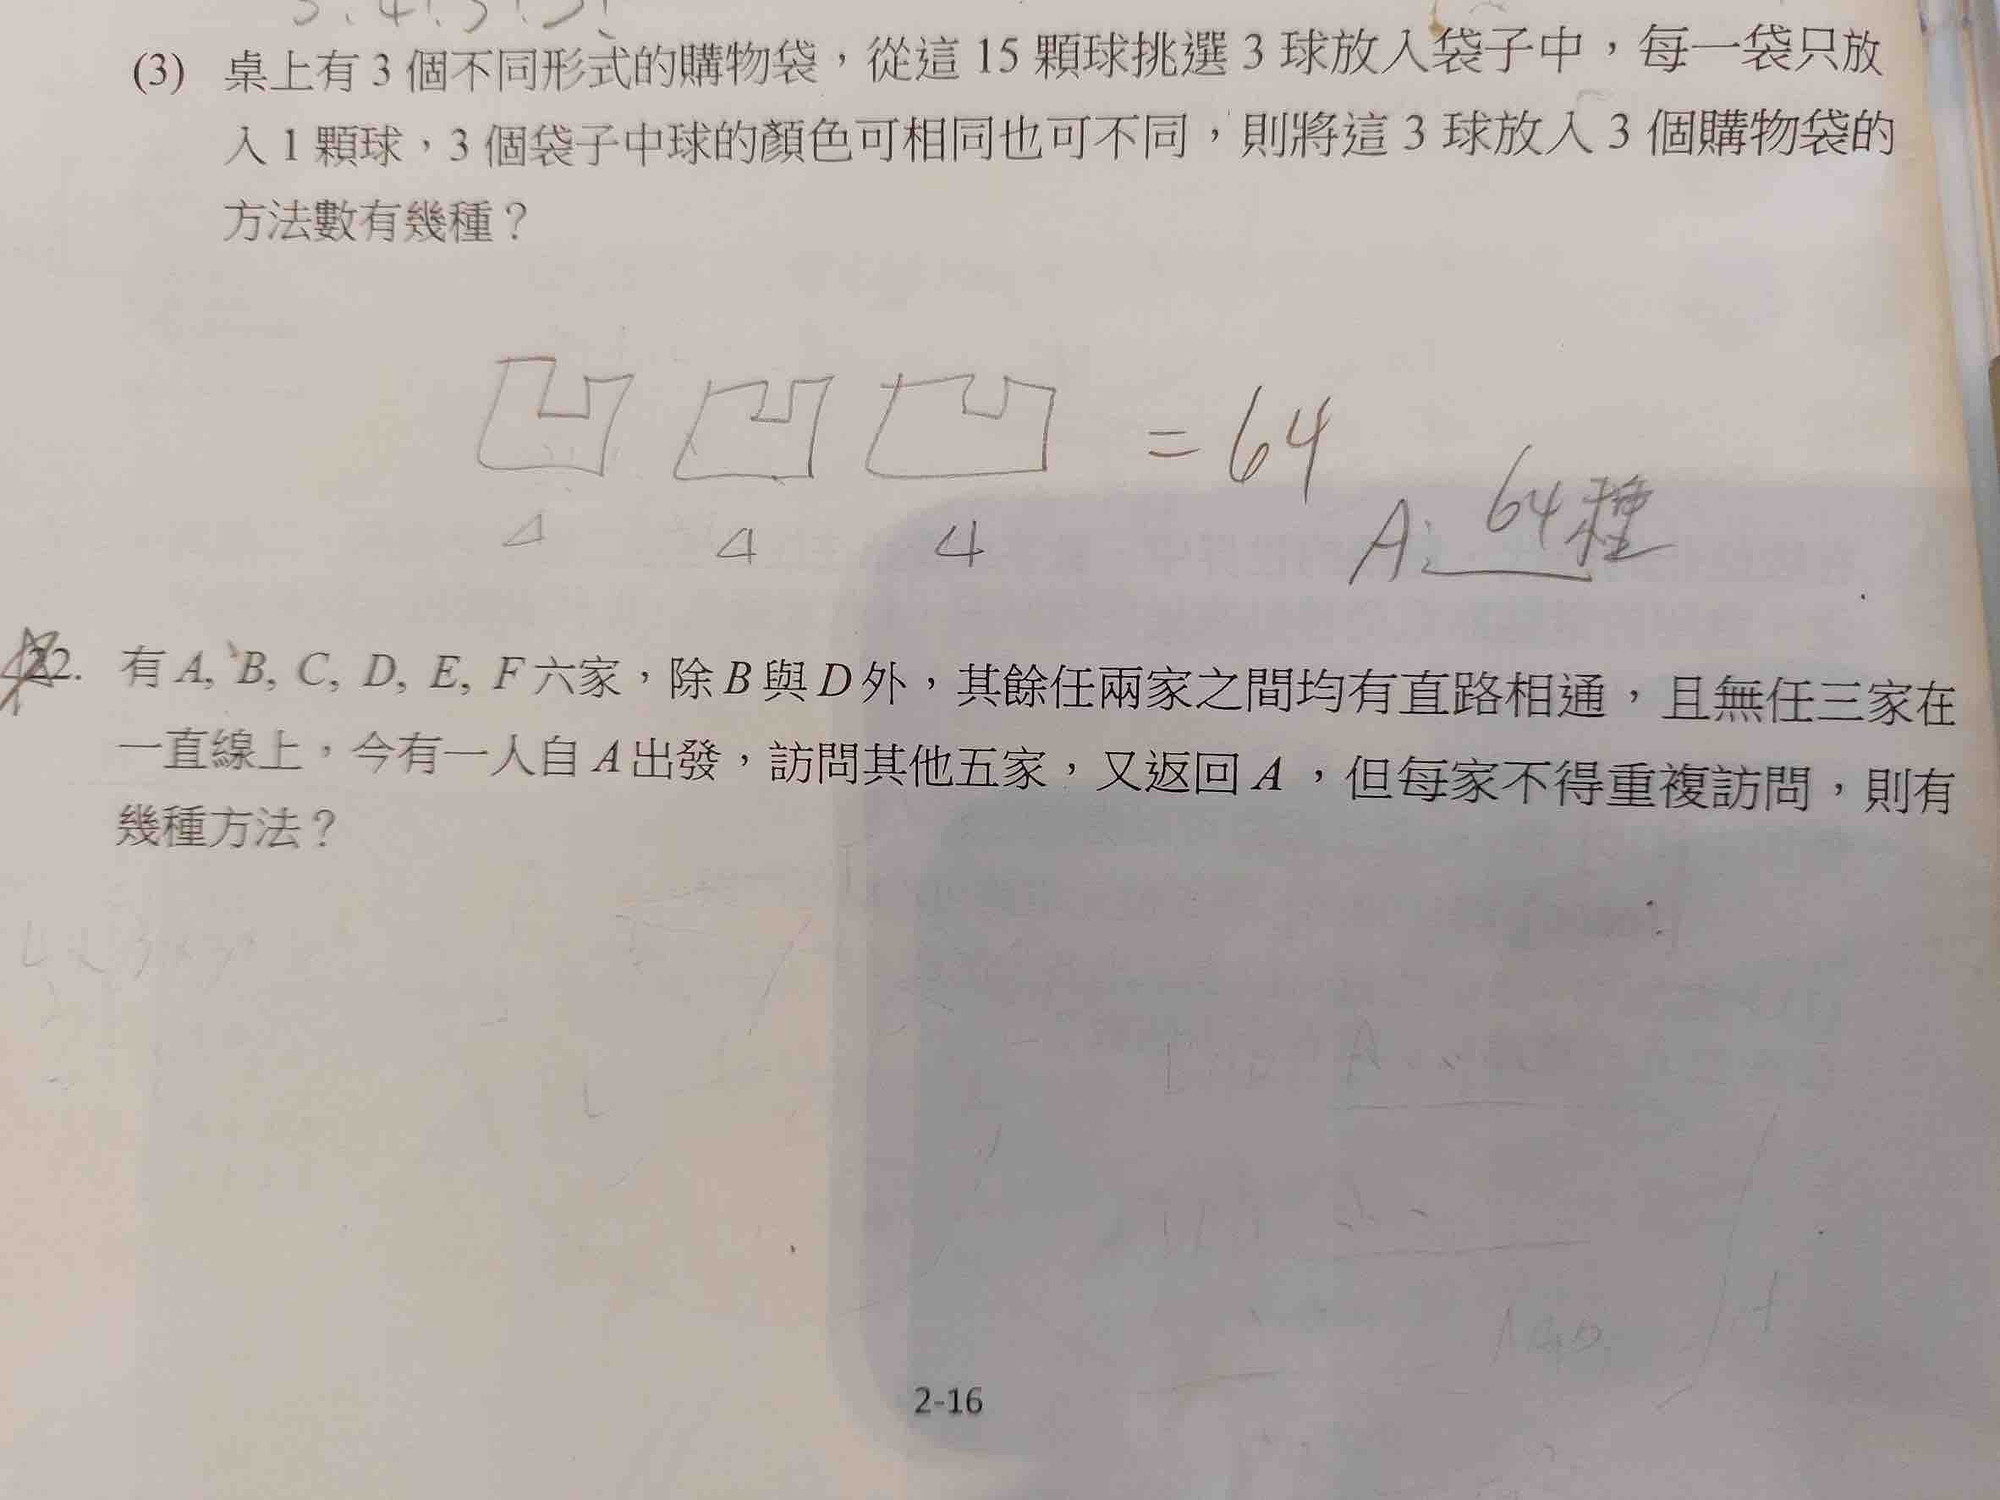 (3) 桌上有 3 個不同形式的購物袋，從這 15 顆球挑選 3 球放入袋子中，每一袋只放
入 1 顆球，3 個袋子中球的顏色可相同也可不同，則將這 3 球放入 3 個購物袋的
方法數有幾種？
= 64
4 4 4
A: 64種
22. 有 A, B, C, D, E, F 六家，除 B 與 D 外，其餘任兩家之間均有直路相通，且無任三家在
一直線上，今有一人自 A 出發，訪問其他五家，又返回 A，但每家不得重複訪問，則有
幾種方法？
2-16